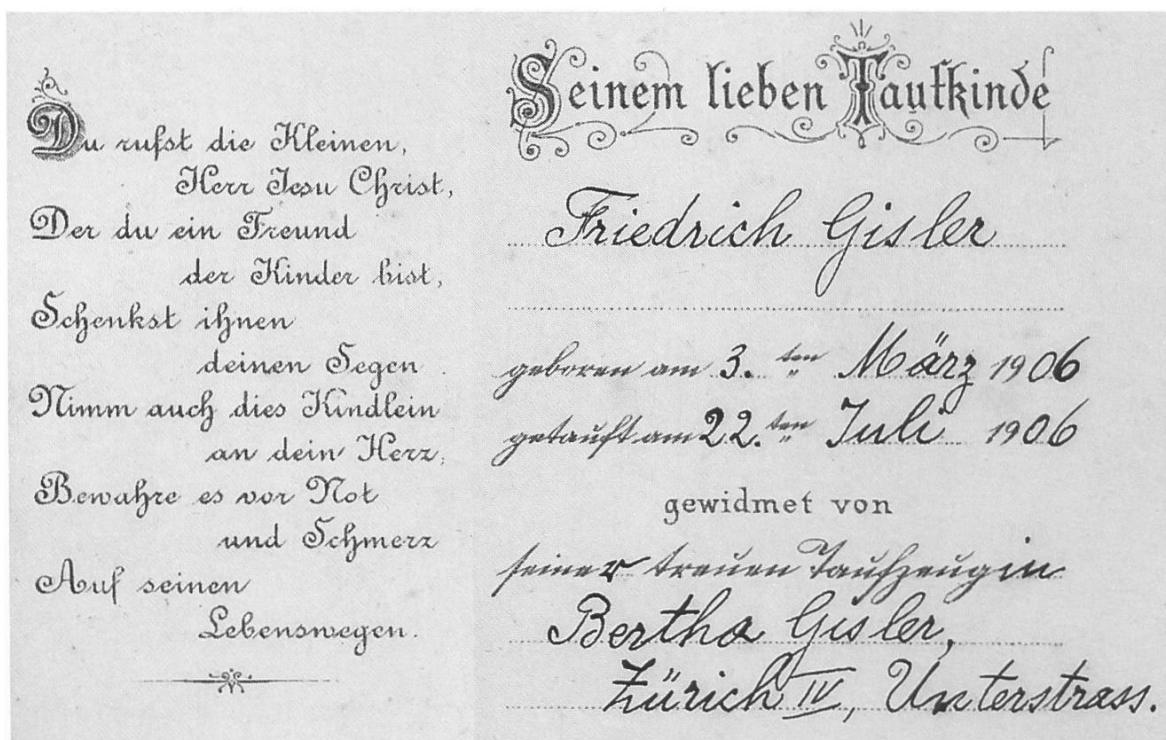 Du rufst die Kleinen,
Herr Jesu Christ,
Der du ein Freund
der Kinder bist,
Schenkst ihnen
deinen Segen
Nimm auch dies Kindlein
an dein Herz,
Bewahre es vor Not
und Schmerz
Auf seinen
Lebenswegen.
Seinem lieben Taufkinde
Friedrich Gisler
geboren am 3. ten März 1906
getauft am 22. ten Juli 1906
gewidmet von
seiner treuen Taufzeugin
Bertha Gisler,
Zürich IV, Unterstrass.